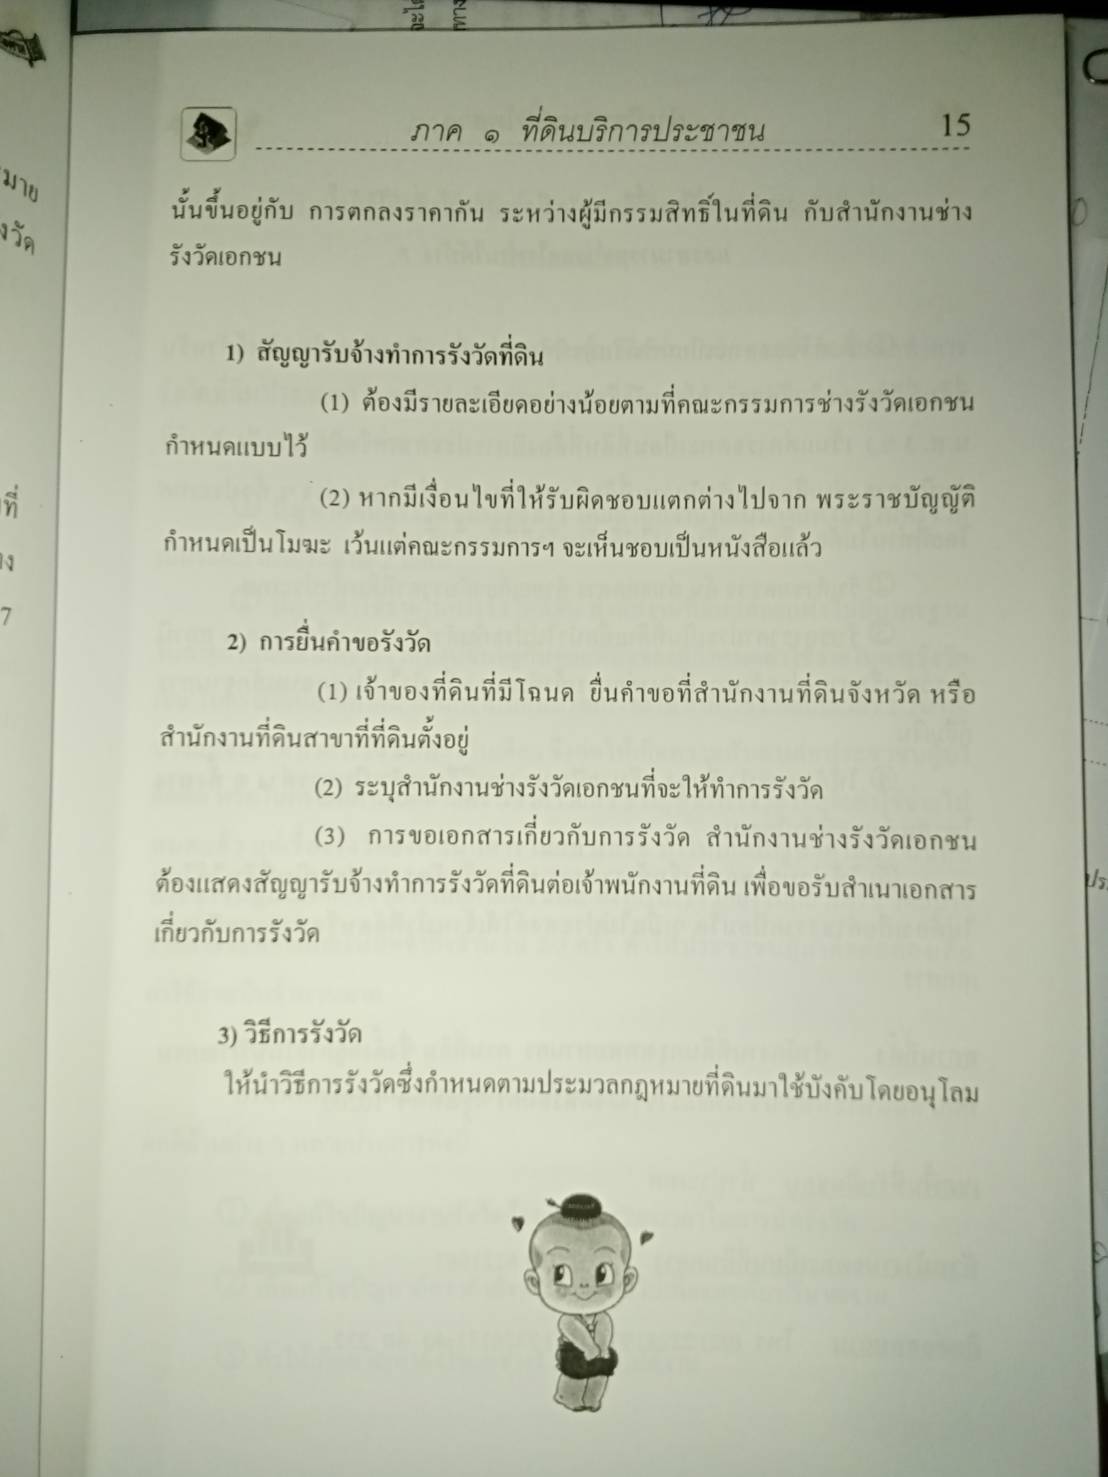 ภาค ๑ ที่ดินบริการประชาชน 15
นั้นขึ้นอยู่กับ การตกลงราคากัน ระหว่างผู้มีกรรมสิทธิ์ในที่ดิน กับสำนักงานช่าง
รังวัดเอกชน
1) สัญญารับจ้างทำการรังวัดที่ดิน
(1) ต้องมีรายละเอียดอย่างน้อยตามที่คณะกรรมการช่างรังวัดเอกชน
กำหนดแบบไว้
(2) หากมีเงื่อนไขที่ให้รับผิดชอบแตกต่างไปจาก พระราชบัญญัติ
กำหนดเป็นโมฆะ เว้นแต่คณะกรรมการฯ จะเห็นชอบเป็นหนังสือแล้ว
2) การยื่นคำขอรังวัด
(1) เจ้าของที่ดินที่มีโฉนด ยื่นคำขอที่สำนักงานที่ดินจังหวัด หรือ
สำนักงานที่ดินสาขาที่ที่ดินตั้งอยู่
(2) ระบุสำนักงานช่างรังวัดเอกชนที่จะให้ทำการรังวัด
(3) การขอเอกสารเกี่ยวกับการรังวัด สำนักงานช่างรังวัดเอกชน
ต้องแสดงสัญญารับจ้างทำการรังวัดที่ดินต่อเจ้าพนักงานที่ดิน เพื่อขอรับสำเนาเอกสาร
เกี่ยวกับการรังวัด
3) วิธีการรังวัด
ให้นำวิธีการรังวัดซึ่งกำหนดตามประมวลกฎหมายที่ดินมาใช้บังคับโดยอนุโลม